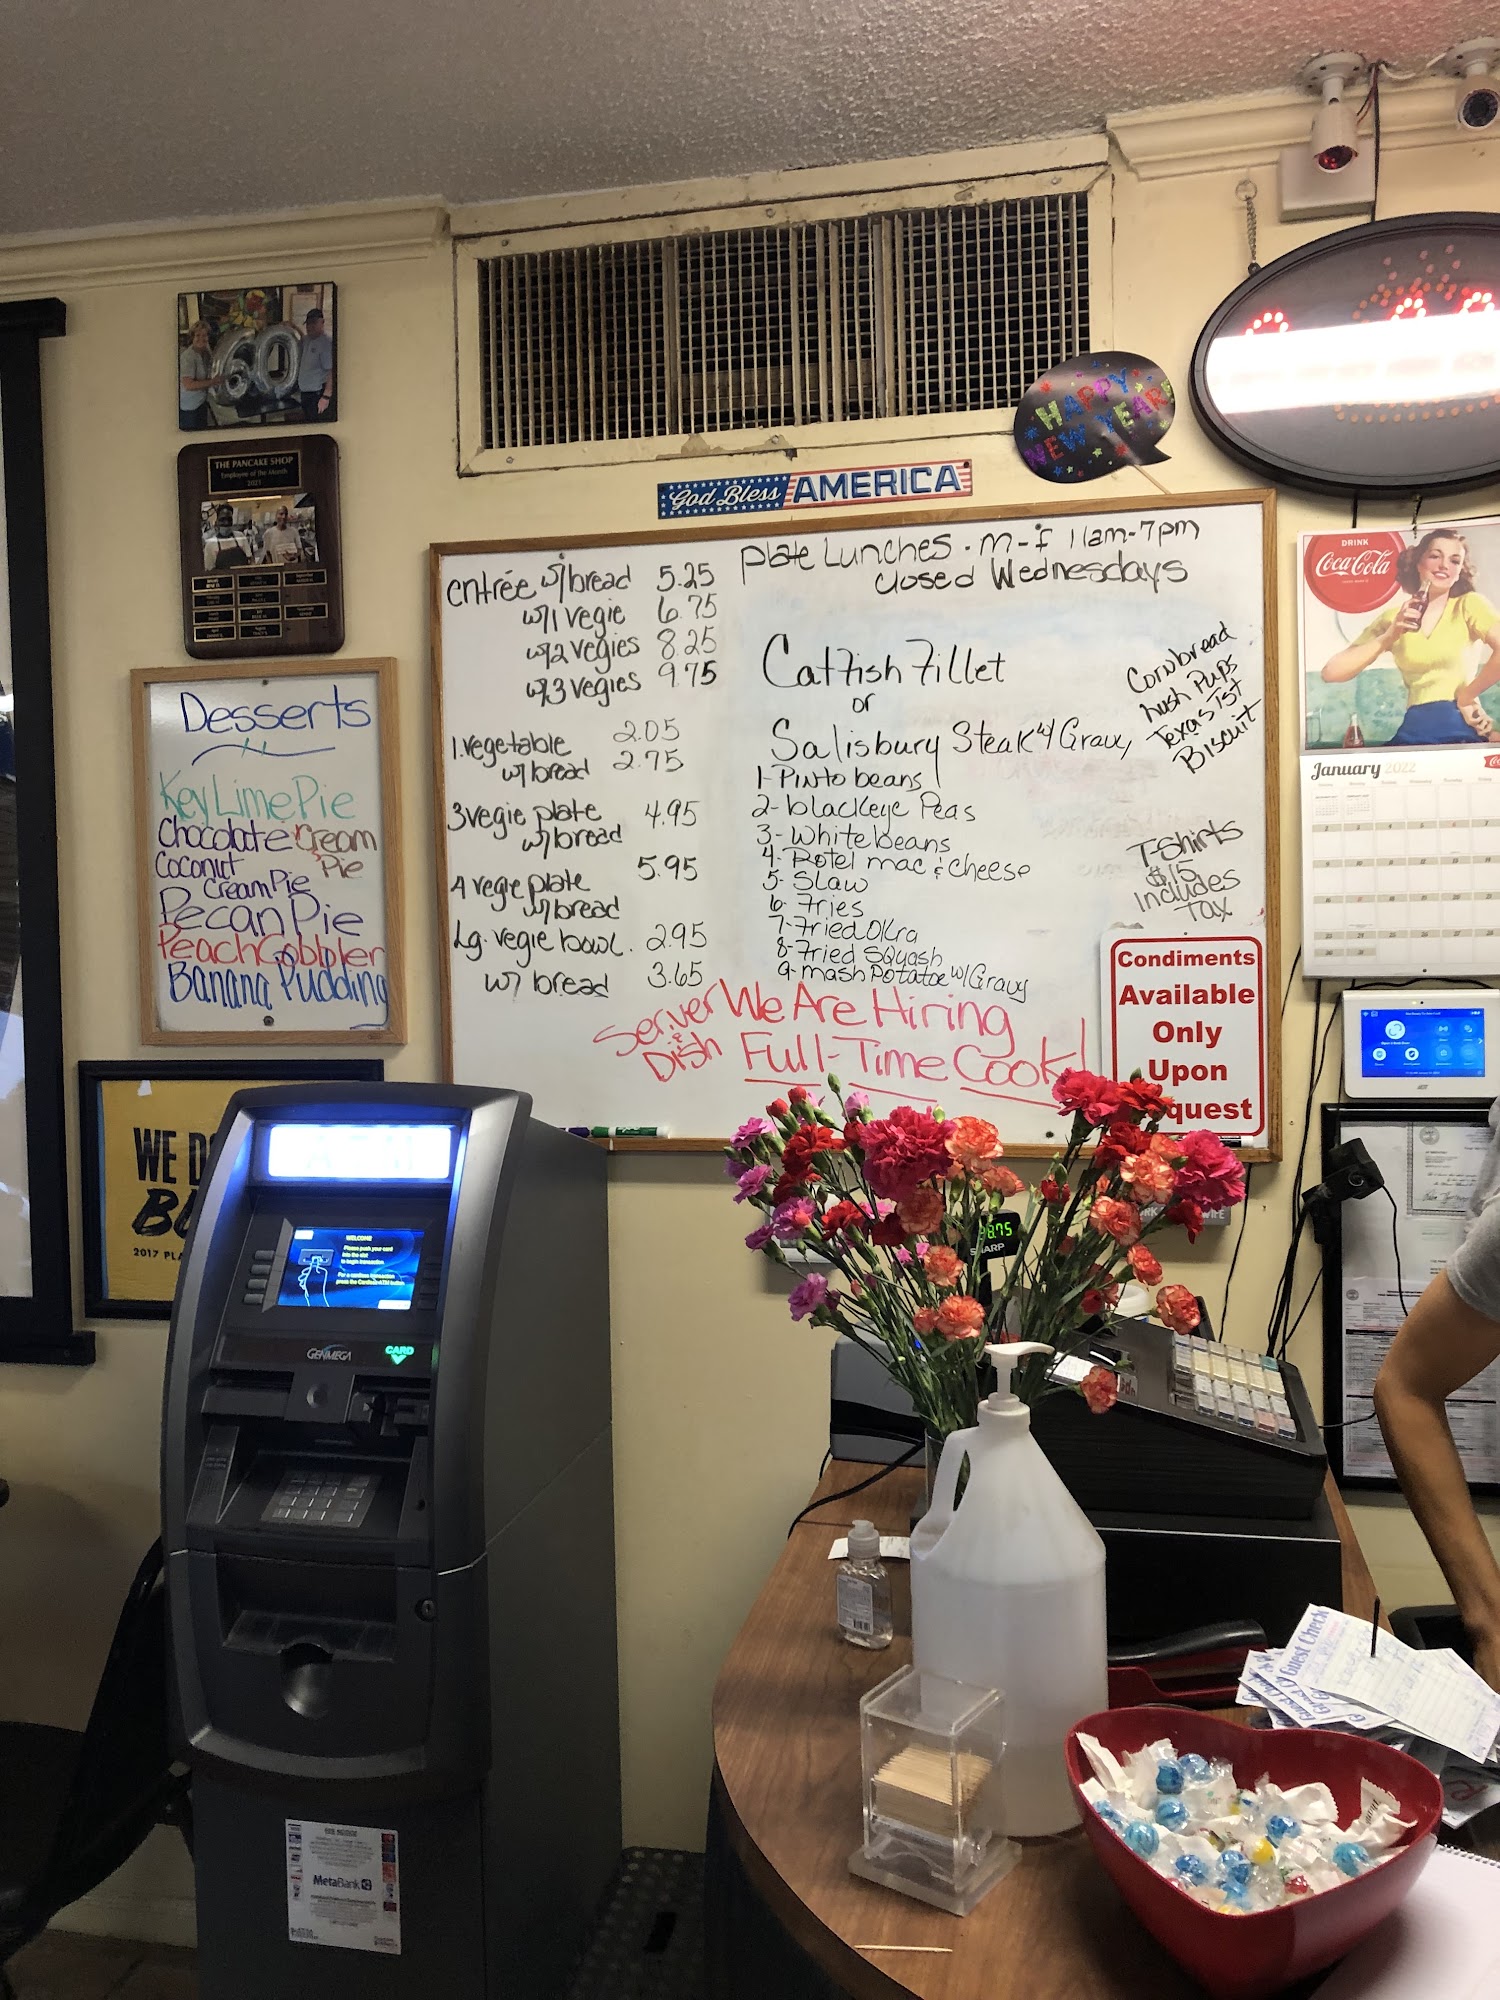 THE PANCAKE SHOP
Employee of the Month
2021
God Bless AMERICA
HAPPY
NEW YEAR
Desserts
Key Lime Pie
Chocolate Cream
Pie
Coconut
Cream Pie
Pecan Pie
Peach Cobbler
Banana Pudding
entrée w/bread 5.25
w/1 vegie 6.75
w/2 vegies 8.25
w/3 vegies 9.75
1. vegetable 2.05
w/bread 2.75
3 vegie plate 4.95
w/bread
4 vegie plate 5.95
w/bread
Lg. vegie bowl. 2.95
w/ bread 3.65
Plate Lunches - M-F 11am-7pm
Closed Wednesdays
Catfish Fillet
or
Salisbury Steak w/ Gravy
1- Pinto beans
2- blackeye Peas
3- White beans
4- Rotel mac & cheese
5- Slaw
6- Fries
7- Fried Okra
8- Fried Squash
9- mash Potatoe w/ Gravy
Cornbread
hush Pups
Texas Tst
Biscuit
T-Shirts
$15
Includes
Tax
Server
&
Dish
We Are Hiring
Full-Time Cook!
Condiments
Available
Only
Upon
quest
DRINK
Coca-Cola
January 2022
WE D
BU
2017 PLA
WELCOME
Please push your card
into the slot
to begin transaction
For a cardless transaction
press the Cardless ATM button
GENMEGA
CARD
MetaBank
SHARP
Guest Check